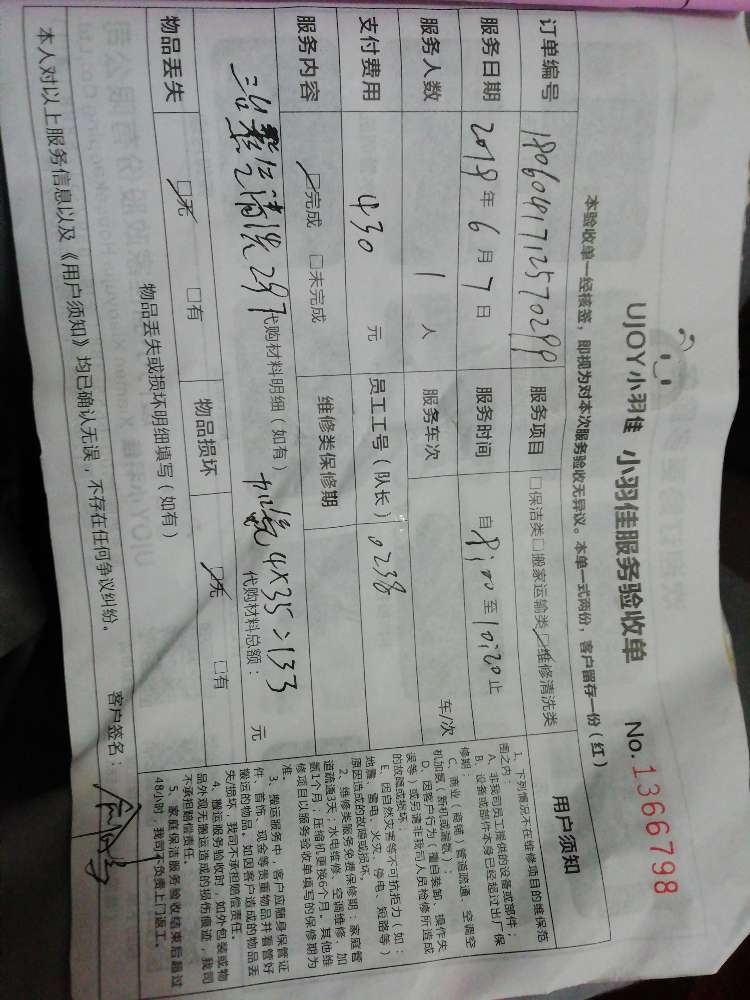 UJOY小羽佳 小羽佳服务验收单 No.1366798
本验收单一经核签，即视为对本次服务验收无异议。本单一式两份，客户留存一份（红）
订单编号 180604171257029 服务项目 □保洁类□搬家运输类☑维修清洗类
服务日期 2018年6月7日 服务时间 自 8:00 至 10:20 止
服务人数 1 人 服务车次 车/次
支付费用 430 元 员工工号（队长） 0238
服务内容 ☑完成 □未完成 维修类保修期
清洗297 代购材料明细（如有） 4×35=133 代购材料总额： 元
物品丢失 ☑无 □有 物品损坏 ☑无 □有
物品丢失或损坏明细填写（如有）
本人对以上服务信息以及《用户须知》均已确认无误，不存在任何争议纠纷。 客户签名：
用户须知
1、下列情况不在维修项目的维保范
围之内：
A、非我司员工提供的设备或部件；
B、设备或部件本来已经超过出厂保
修期；
C、商业（商铺）管道疏通、空调空
机加氟（新机或漏氟）；
D、因客户行为（擅自装卸、操作失
误等）或另请非我司人员检修所造成
的故障或损坏。
E、因自然灾害等不可抗拒力（如：
地震、雷电、火灾、停电、短路等）
原因造成的故障或损坏。
2、维修类服务免费保修期：家庭管
道疏通3天；水电维修、空调维修、加
氟1个月；压缩机更换6个月。其他维
修项目以服务验收单填写的保修期为
准。
3、搬运服务中，客户应随身保管证
件、首饰、现金等贵重物品并看管好
搬运的物品。如因客户造成的物品丢
失/损坏，我司不承担赔偿责任。
4、搬运服务验收时，如外包装或物
品外观无搬运造成的损伤痕迹，我司
不承担赔偿责任。
5、家庭保洁服务验收结束后超过
48小时，我司不负责上门返工。